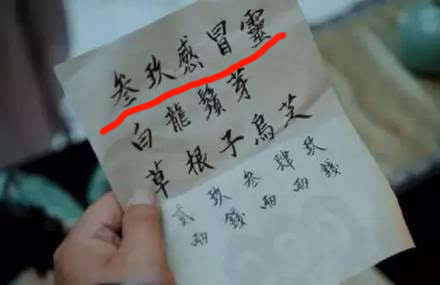 叁玖感冒靈
白龍鬚芽
草根子烏芝
貳兩
玖錢
叁兩
肆兩
玖錢